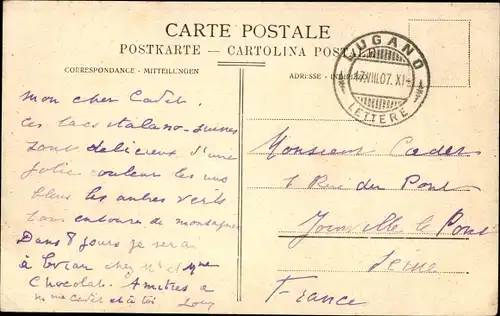 CARTE POSTALE
POSTKARTE — CARTOLINA POSTALE
CORRESPONDANCE - MITTEILUNGEN
ADRESSE - INDIRIZZO
LUGANO
17.VIII.07. XI
LETTERE
Mon cher Cadet.
Ces lacs italano-suisses
sont délicieux d'une
jolie couleur les uns
bleus les autres verts
tous entourés de montagnes
Dans 8 jours je serai
à Evian chez Mr et Mme
Chocolat. Amitiés a
Mme Cadet et à toi
Monsieur Cadet
1 Rue du Pont
Joinville le Pont
Seine
France